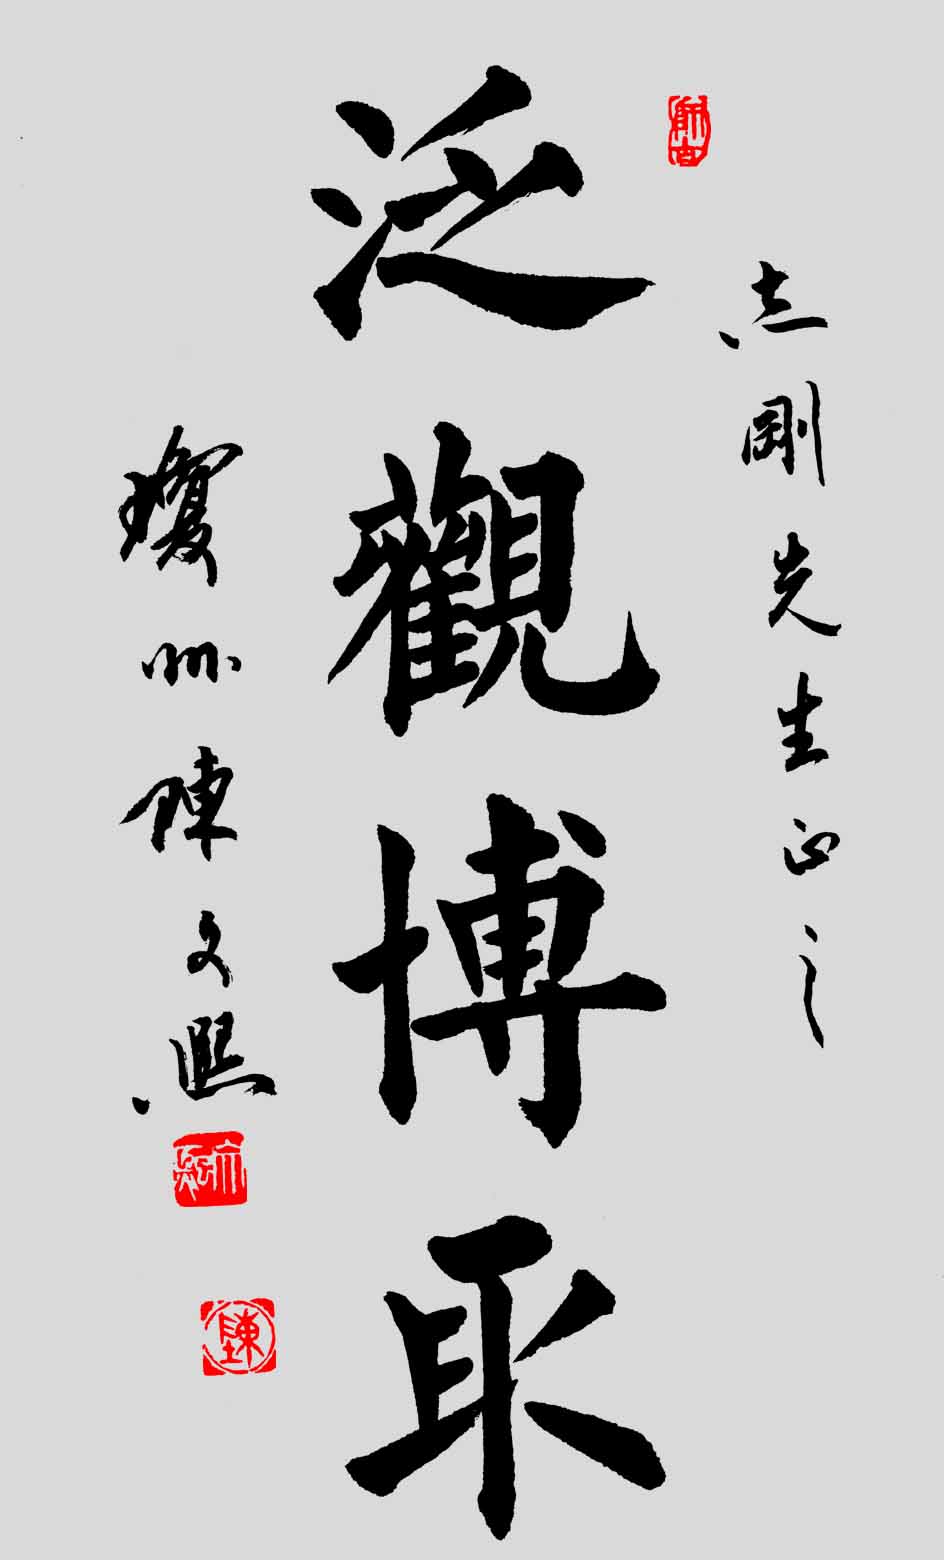 志剛先生正之
泛觀博取
瓊州陳文熙
陳